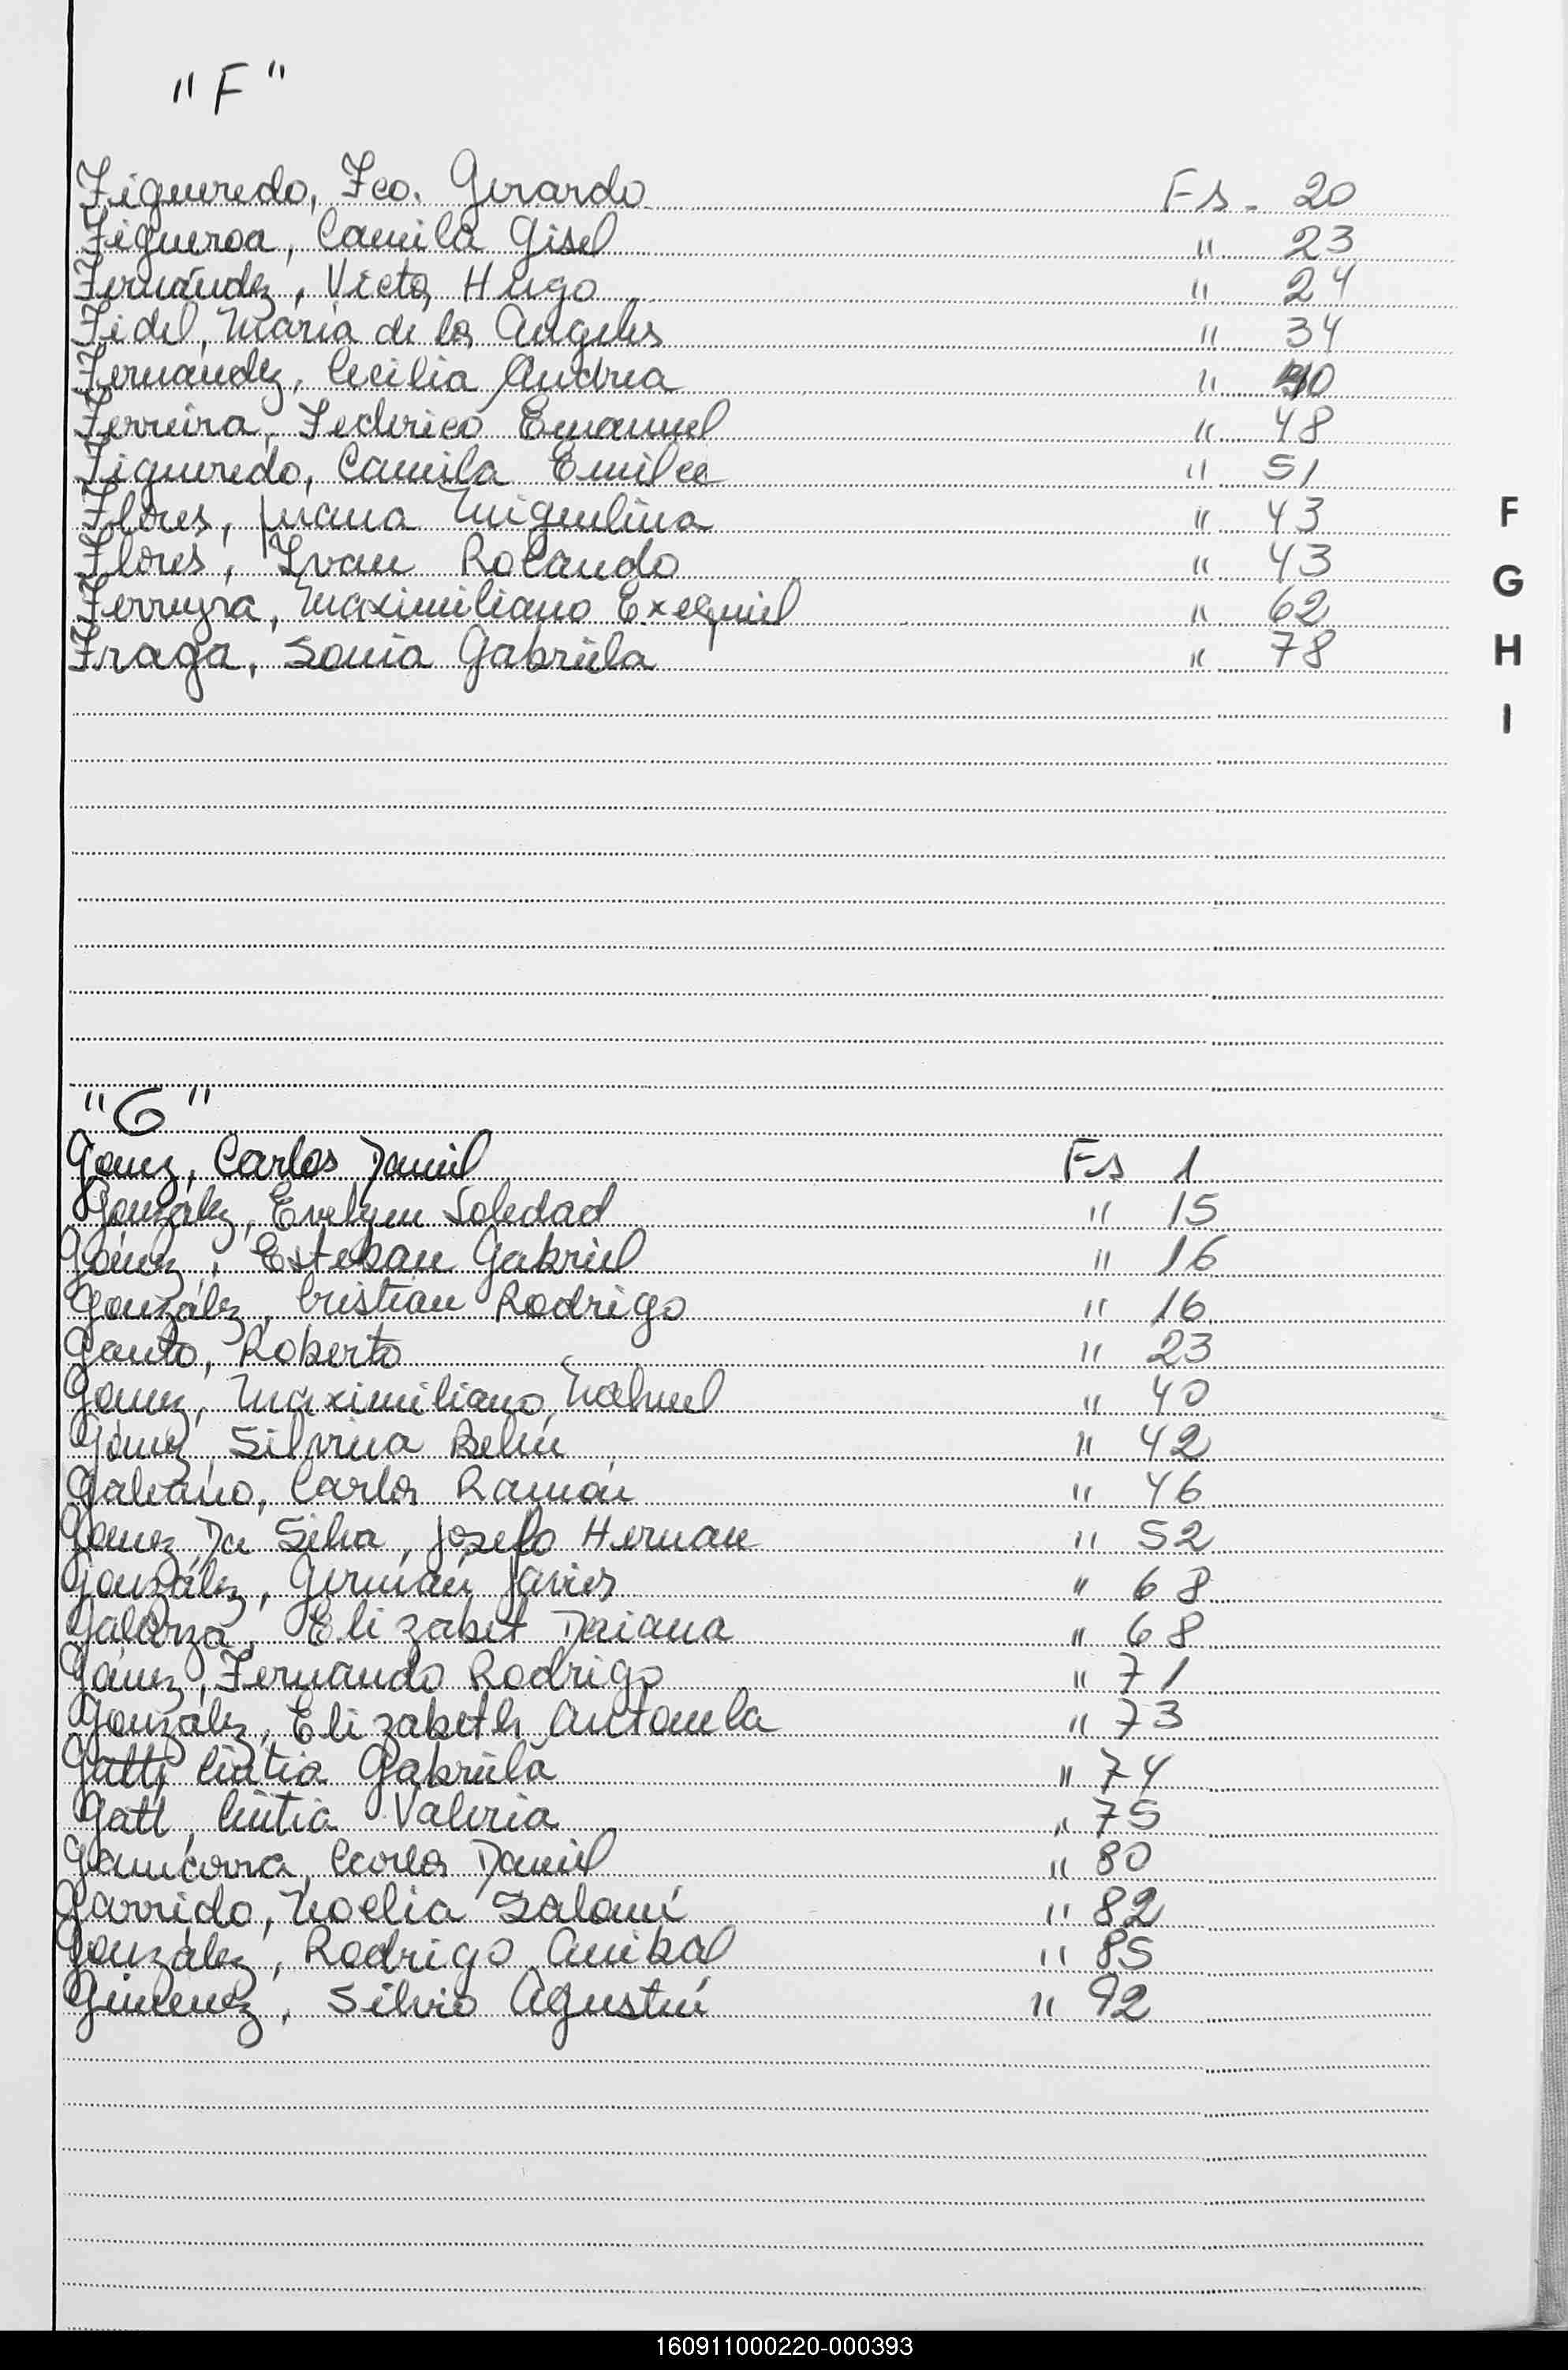 "F"
Figueredo, Fco. Gerardo Fs. 20
Figueroa, Camila Gisel " 23
Fernández, Victor Hugo " 24
Fidel, María de los Angeles " 34
Fernández, Cecilia Andrea " 40
Ferreira, Federico Emanuel " 48
Figueredo, Camila Emilce " 51
Flores, Juana Miguelina " 43
F
Flores, Ivan Rolando " 43
G
Ferreyra, Maximiliano Exequiel " 62
Fraga, Sonia Gabriela " 78
H
I
"G"
Gomez, Carlos Daniel Fs 1
González, Evelyn Soledad " 15
Gómez, Esteban Gabriel " 16
González, Cristian Rodrigo " 16
Gauto, Roberto " 23
Gomez, Maximiliano Nahuel " 40
Gómez, Silvina Belén " 42
Galeano, Carlos Ramón " 46
Gomez Da Silva, Josefo Hernan " 52
González, Germán Javier " 68
Galarza, Elizabet Daiana " 68
Gómez, Fernando Rodrigo " 71
González, Elizabeth Antonela " 73
Gatti, Cintia Gabriela " 74
Gatti, Cintia Valeria " 75
Carlos Daniel " 80
Garrido, Noelia Salomé " 82
González, Rodrigo Anibal " 85
Gimenez, Silvio Agustín " 92
160911000220-000393